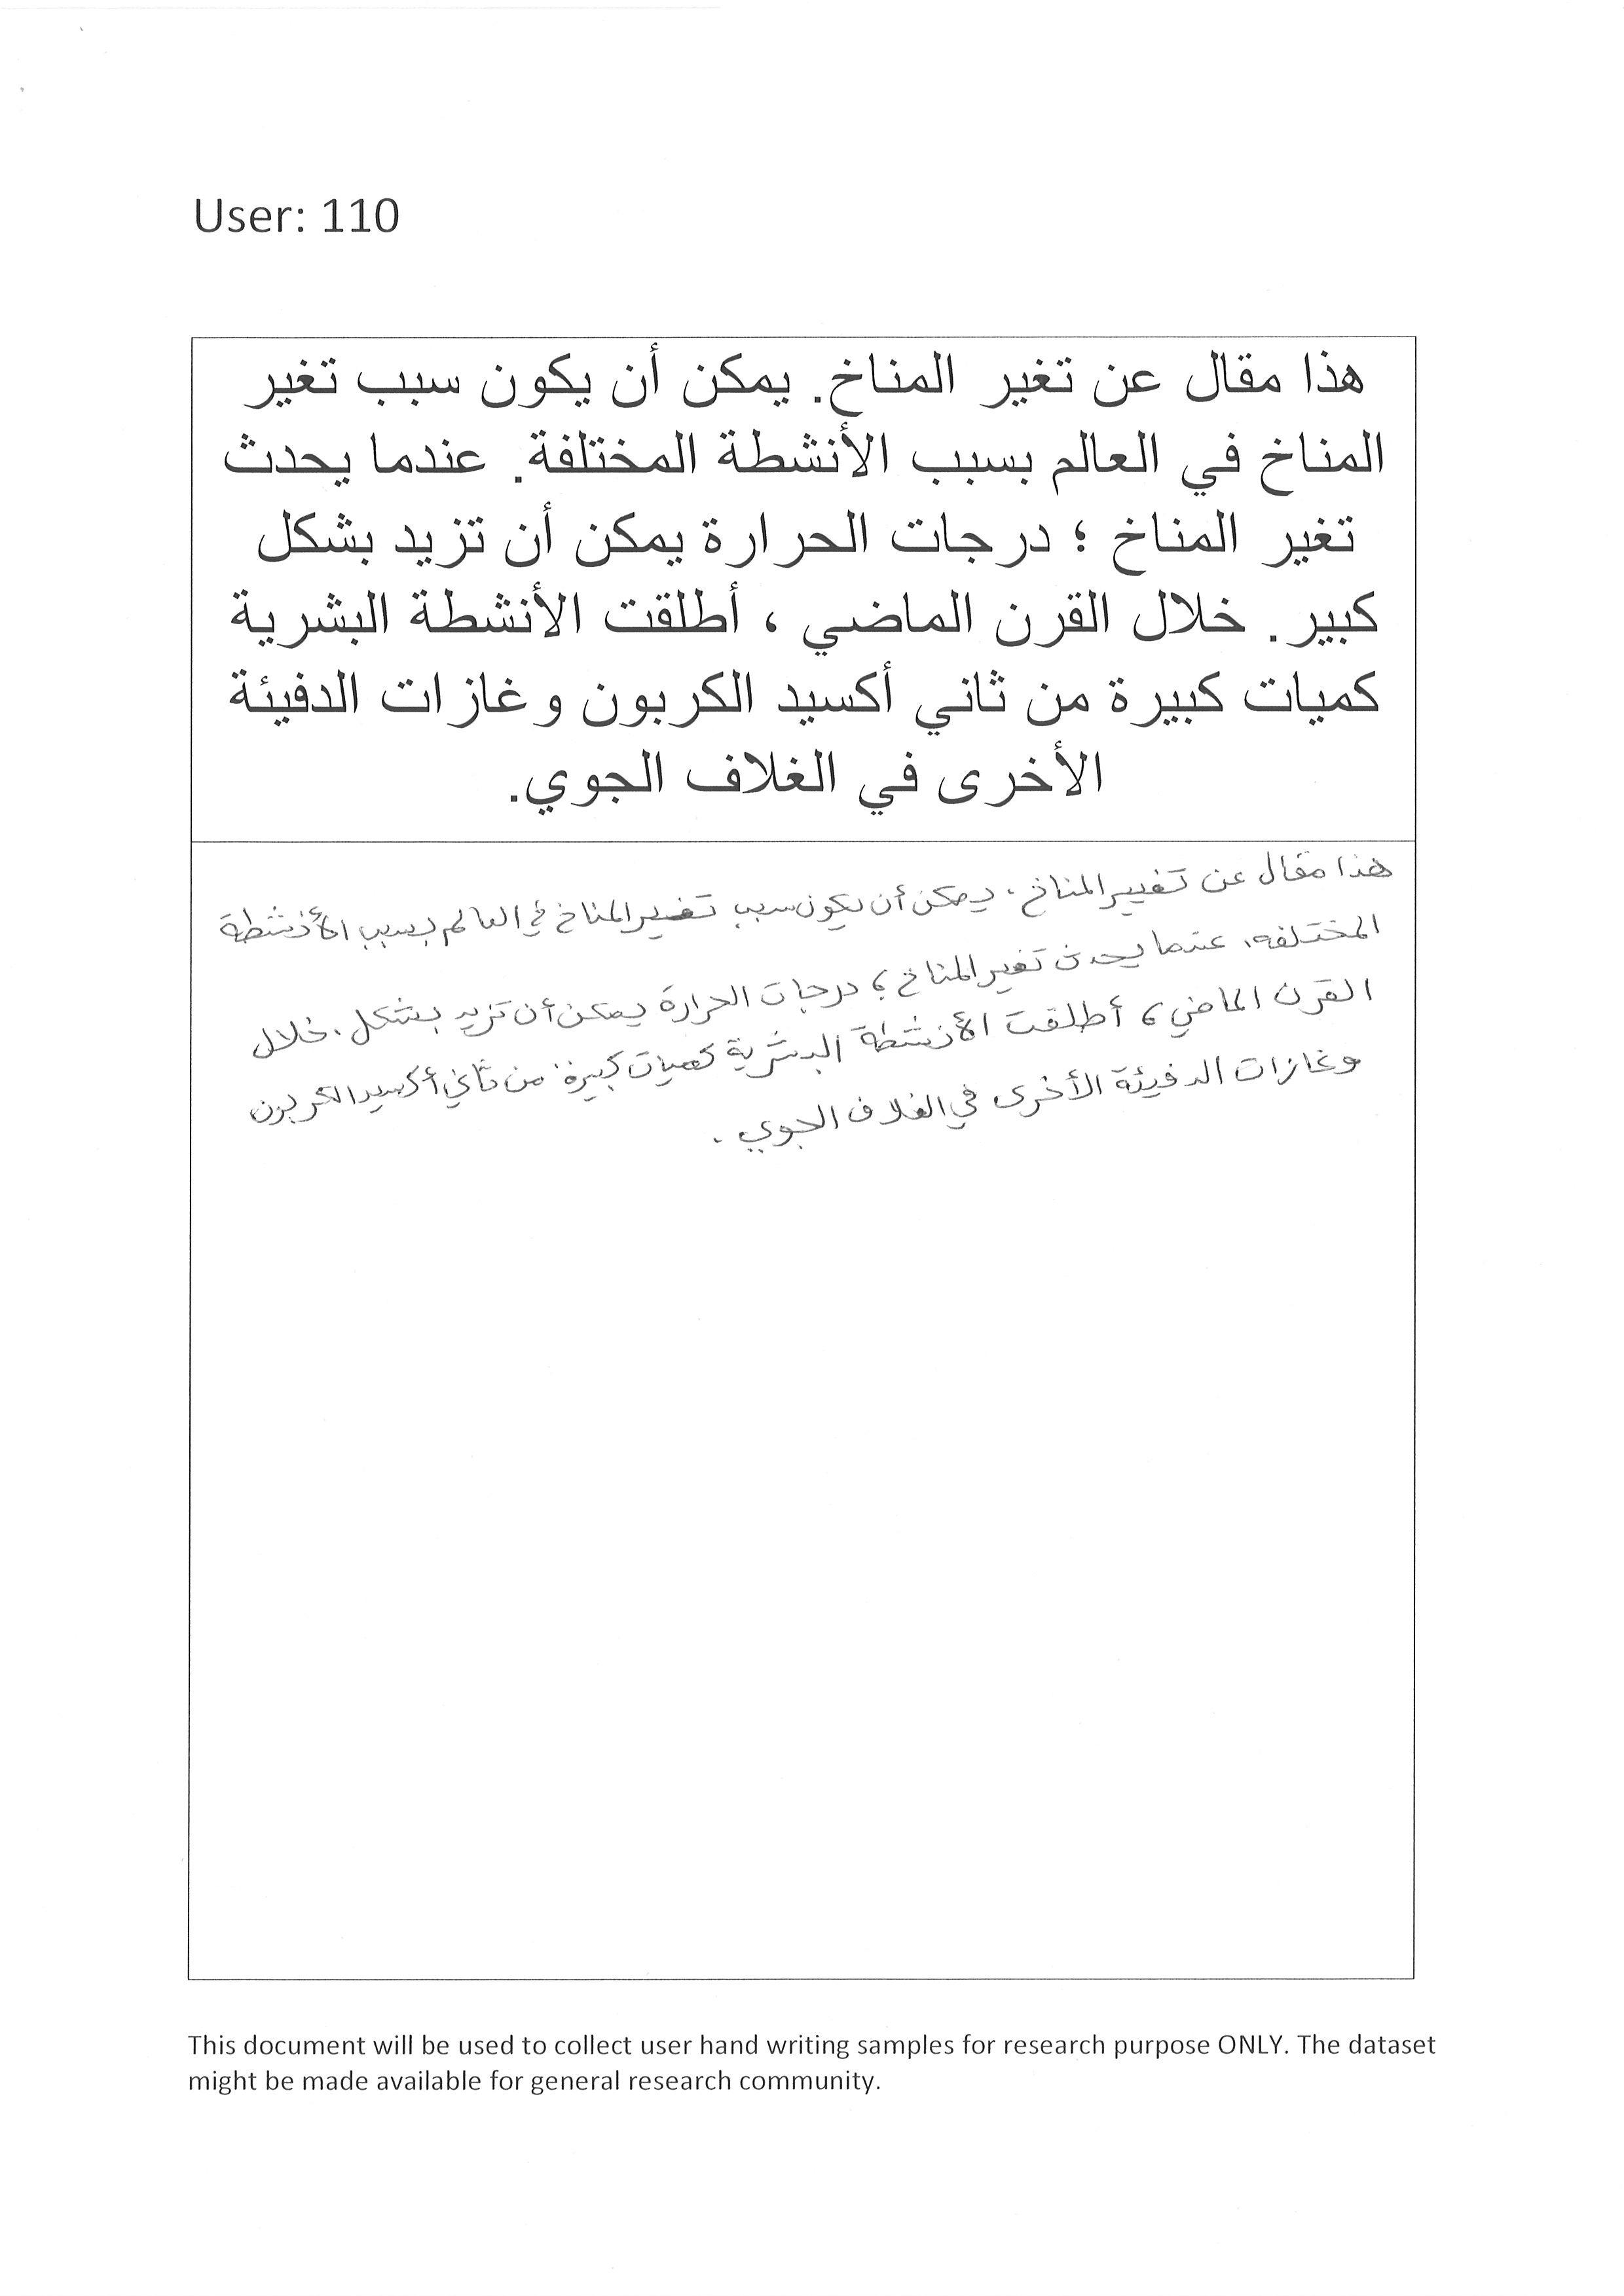 User: 110
هذا مقال عن تغير المناخ. يمكن أن يكون سبب تغير
المناخ في العالم بسبب الأنشطة المختلفة. عندما يحدث
تغير المناخ ؛ درجات الحرارة يمكن أن تزيد بشكل
كبير. خلال القرن الماضي ، أطلقت الأنشطة البشرية
كميات كبيرة من ثاني أكسيد الكربون وغازات الدفيئة
الأخرى في الغلاف الجوي.
هذا مقال عن تغيير المناخ. يمكن أن يكون سبب تغير المناخ في العالم بسبب الأنشطة
المختلفه. عندما يحدث تغير المناخ ؛ درجات الحرارة يمكن أن تزيد بشكل. خلال
القرن الماضي ، أطلقت الأنشطة البشرية كميات كبيرة من ثاني أكسيد الكربون
وغازات الدفيئة الأخرى في الغلاف الجوي.
This document will be used to collect user hand writing samples for research purpose ONLY. The dataset
might be made available for general research community.